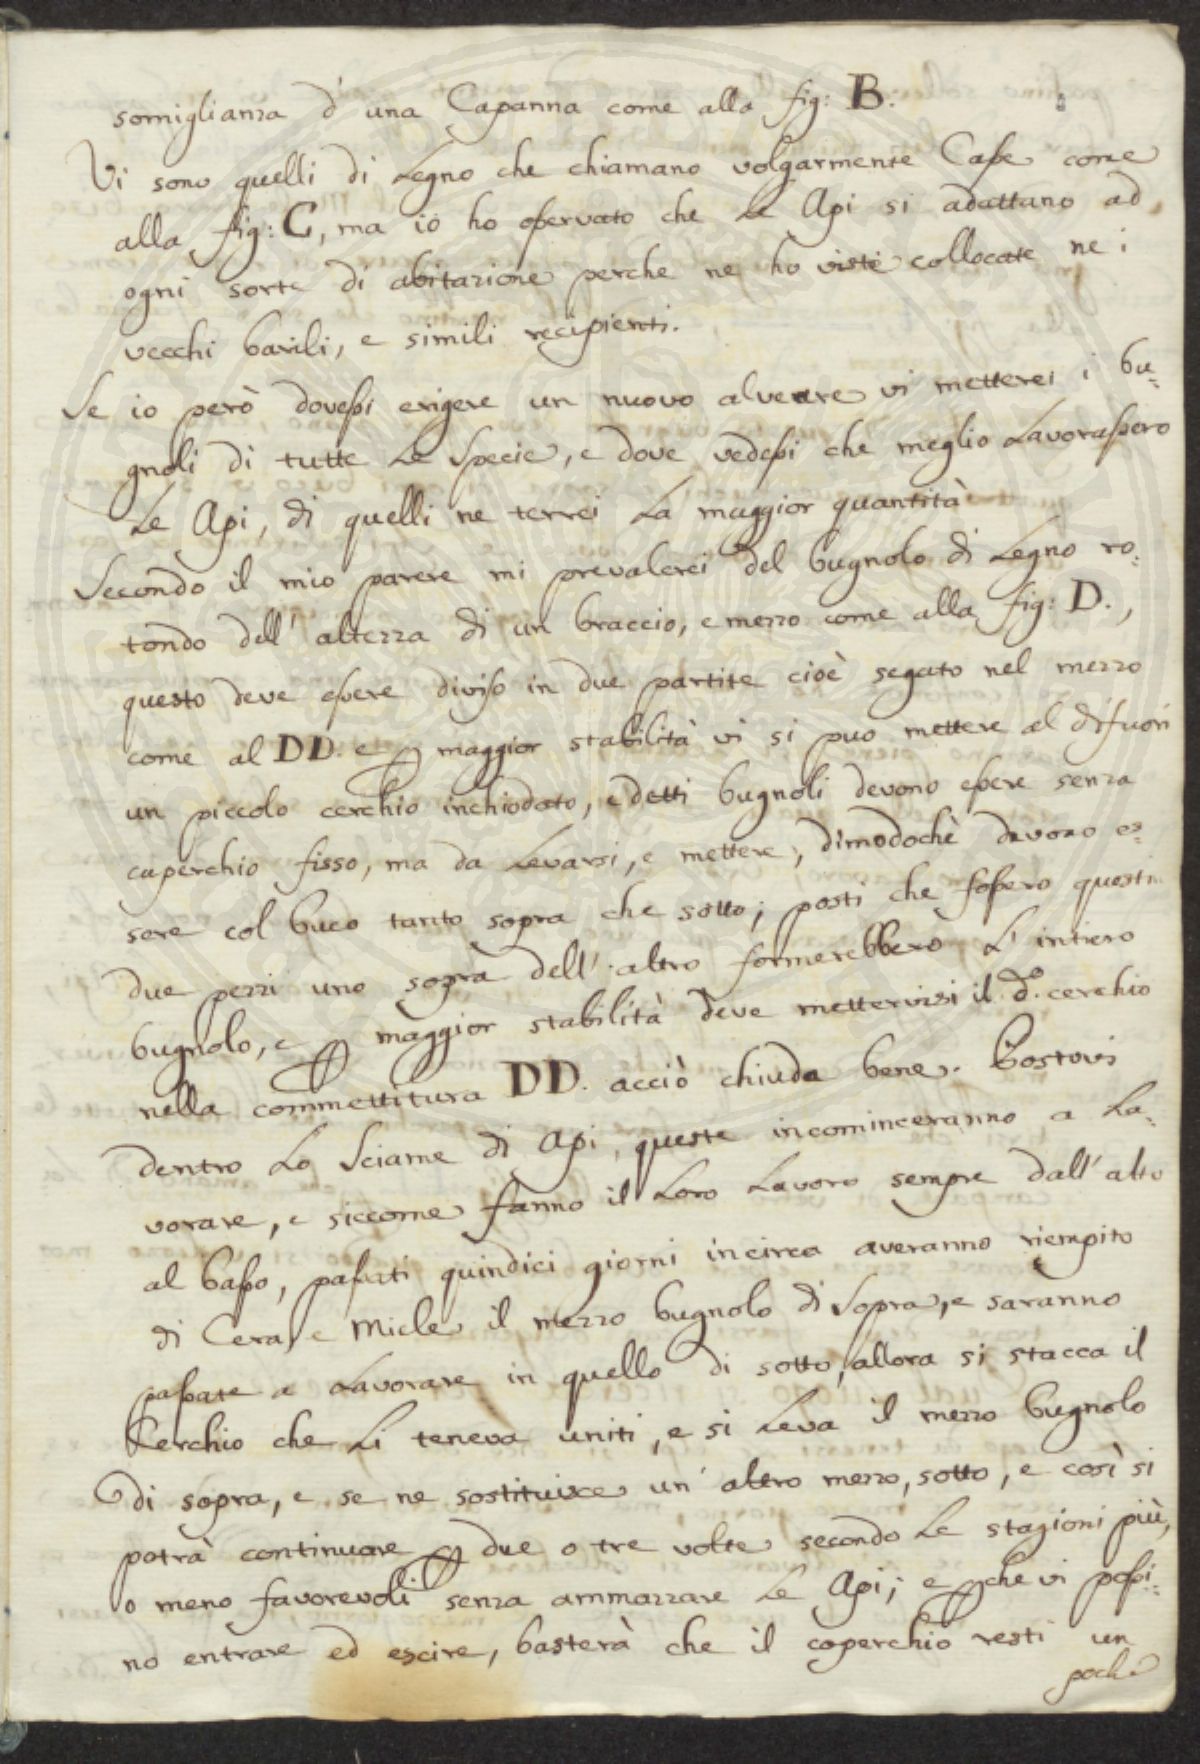 somiglianza d'una Capanna come alla fig: B.
Vi sono quelli di Legno che chiamano volgarmente Casse come
alla fig: C, ma io ho osservato che Le Api si adattano ad
ogni sorte di abitazione perche ne ho viste collocate ne i
vecchi barili, e simili recipienti.
Se io però dovessi erigere un nuovo alveare vi metterei i bu=
gnoli di tutte Le Specie, e dove vedessi che meglio Lavorassero
Le Api, di quelli ne terrei La maggior quantità
Secondo il mio parere mi prevalerei del bugnolo di Legno ro=
tondo dell'altezza di un braccio, e mezzo come alla fig: D.,
questo deve essere diviso in due partite cioè segato nel mezzo
come al DD. e p maggior stabilità vi si puo mettere al difuori
un piccolo cerchio inchiodato, e detti bugnoli devono essere senza
cuperchio fisso, ma da Levarsi, e mettere, dimodochè devono es=
sere col buco tanto sopra che sotto; posti che fossero questi
due pezzi uno sopra dell'altro formerebbero L'intiero
bugnolo, e p maggior stabilità deve mettervisi il d.º cerchio
nella commettitura DD. acciò chiuda bene. Postovi
dentro Lo Sciame di Api, queste incominceranno a La=
vorare, e siccome fanno il Loro Lavoro sempre dall'alto
al basso, passati quindici giorni incirca averanno riempito
di Cera, e Miele il mezzo bugnolo di Sopra, e saranno
passate a Lavorare in quello di sotto, allora si stacca il
Cerchio che Li teneva uniti, e si Leva il mezzo bugnolo
di sopra, e se ne sostituisce un'altro mezzo, sotto, e così si
potrà continuare p due o tre volte secondo Le stagioni più,
o meno favorevoli senza ammazzare Le Api; e pche vi possi=
no entrare ed escire, basterà che il coperchio resti un
poche